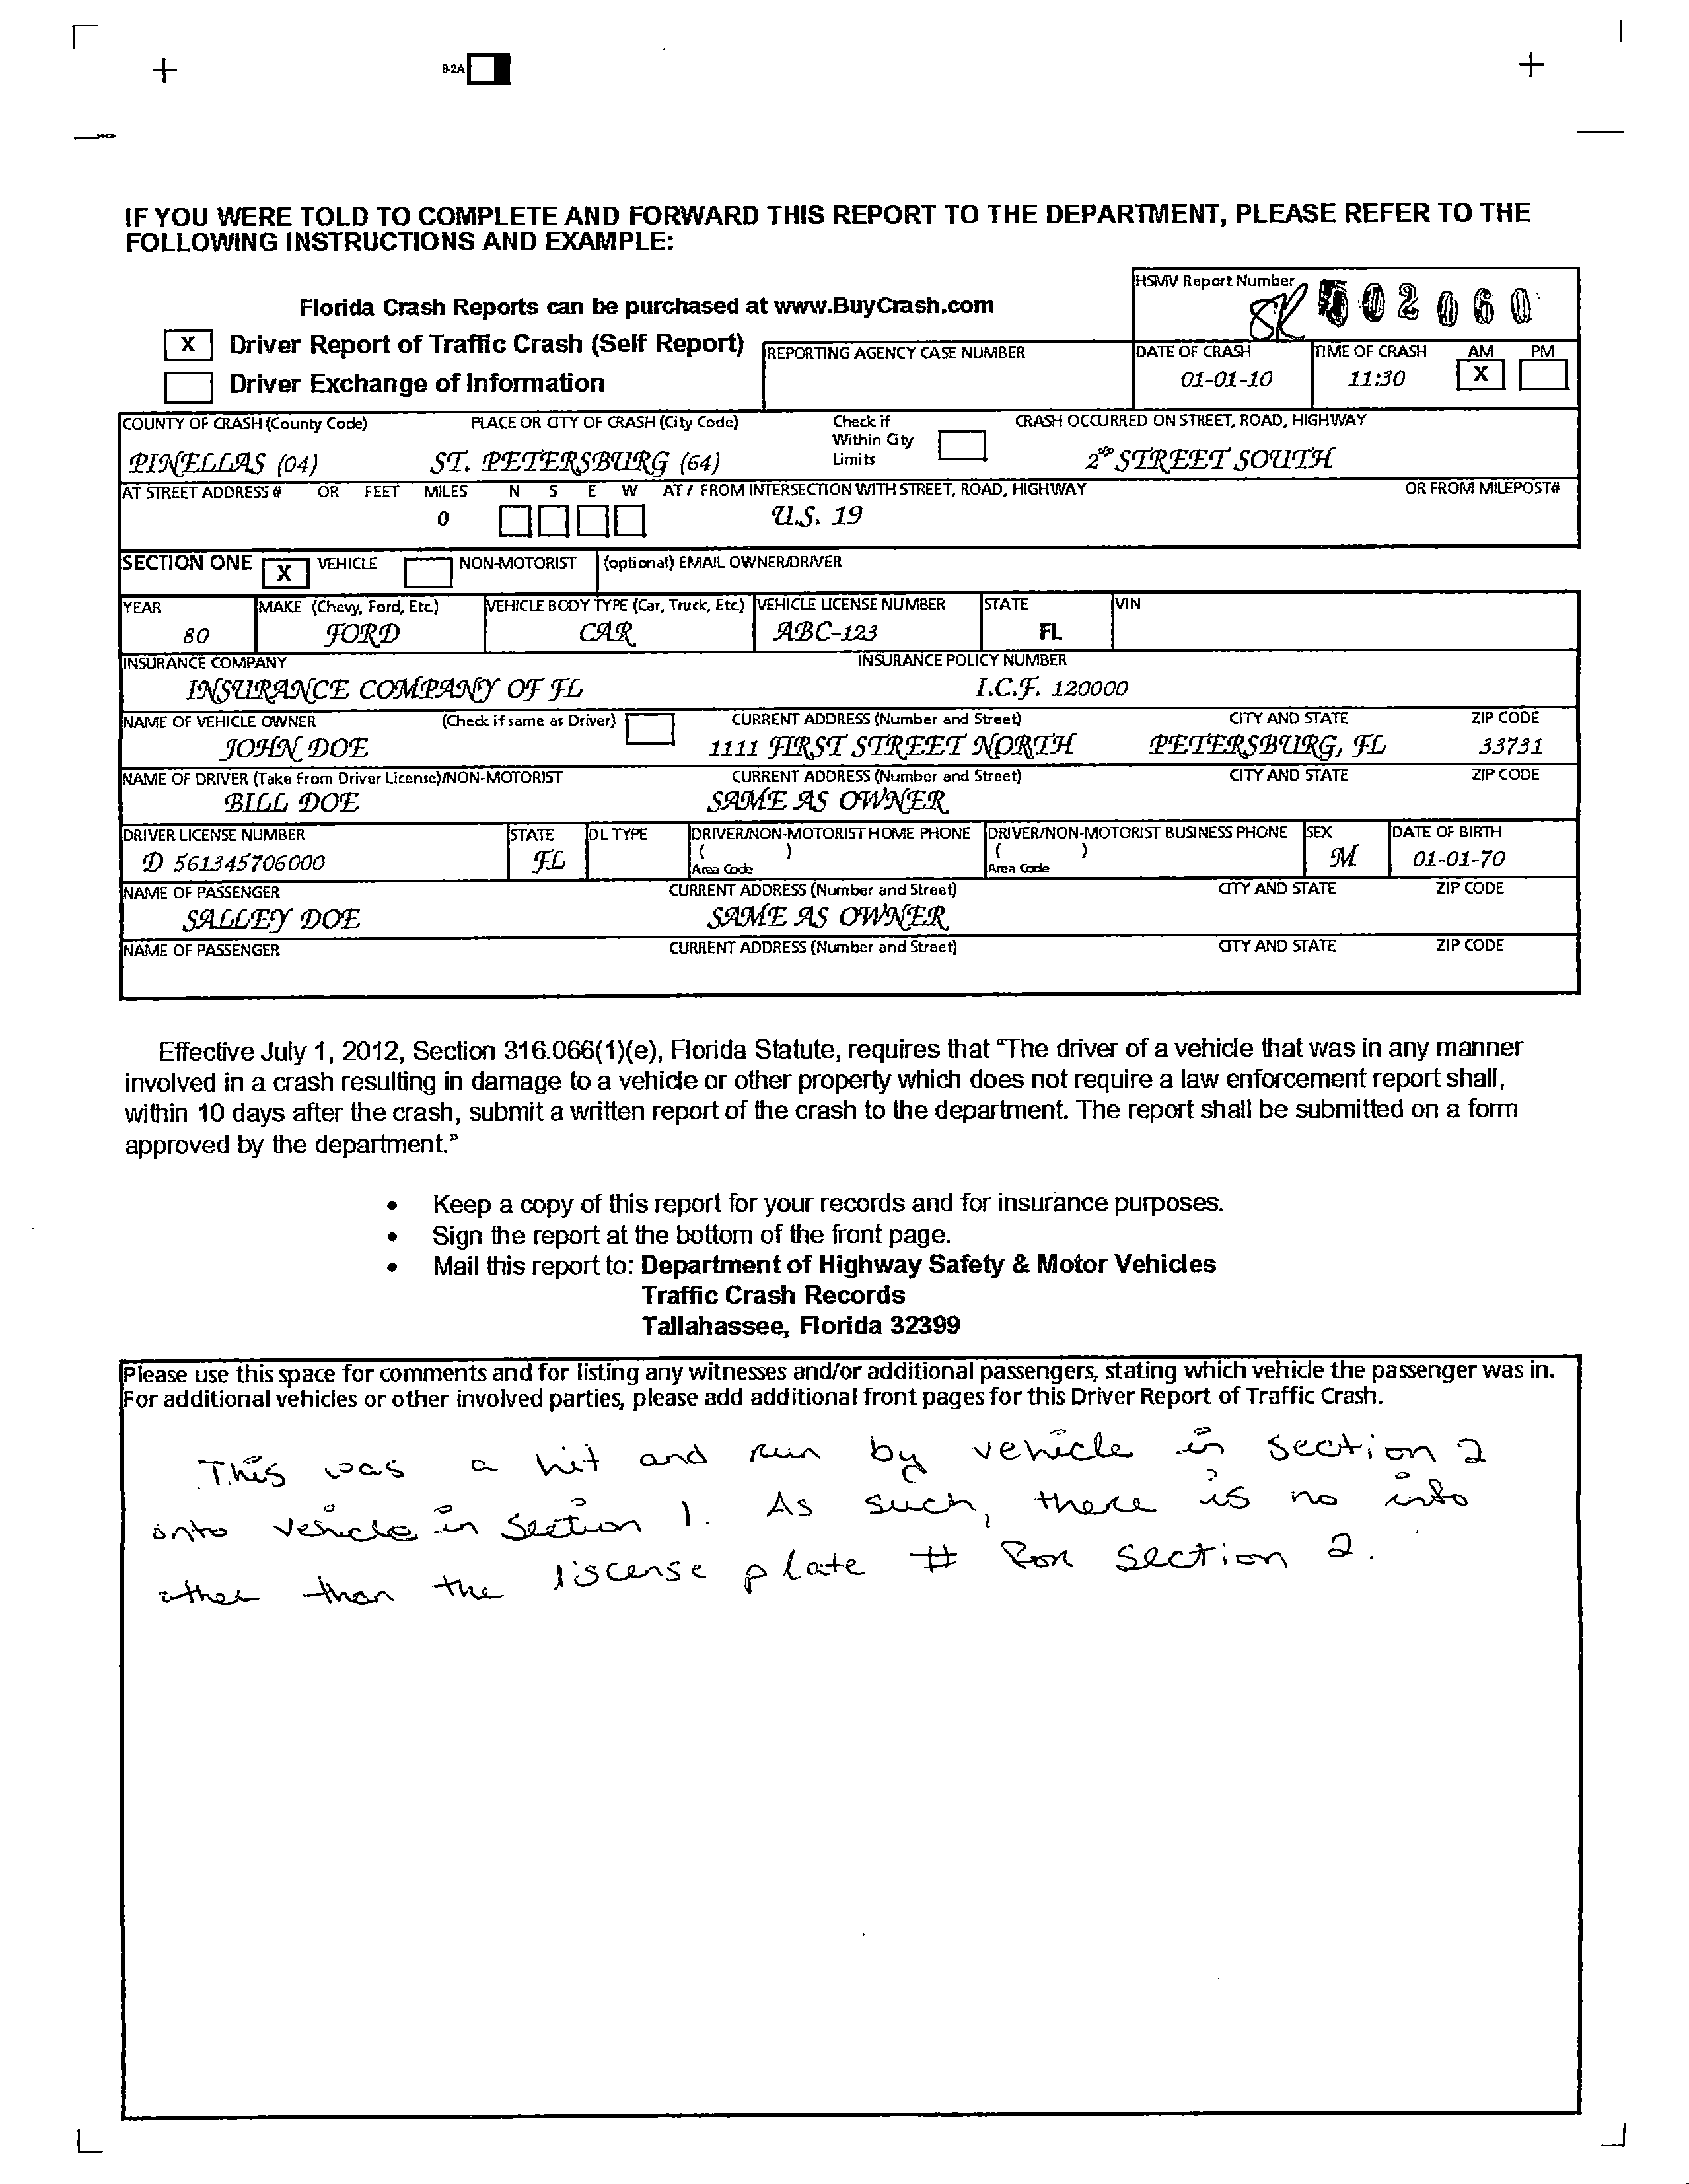 B-2A
IF YOU WERE TOLD TO COMPLETE AND FORWARD THIS REPORT TO THE DEPARTMENT, PLEASE REFER TO THE
FOLLOWING INSTRUCTIONS AND EXAMPLE:
Florida Crash Reports can be purchased at www.BuyCrash.com
HSMV Report Number
02060
X Driver Report of Traffic Crash (Self Report)
Driver Exchange of Information
REPORTING AGENCY CASE NUMBER
DATE OF CRASH TIME OF CRASH AM PM
01-01-10 11:30 X
COUNTY OF CRASH (County Code) PLACE OR CITY OF CRASH (City Code) Check if Within City Limits CRASH OCCURRED ON STREET, ROAD, HIGHWAY
PINELLAS (04) ST. PETERSBURG (64) STREET SOUTH
AT STREET ADDRESS # OR FEET MILES N S E W AT / FROM INTERSECTION WITH STREET, ROAD, HIGHWAY OR FROM MILEPOST#
0 U.S. 19
SECTION ONE X VEHICLE NON-MOTORIST (optional) EMAIL OWNER/DRIVER
YEAR MAKE (Chevy, Ford, Etc.) VEHICLE BODY TYPE (Car, Truck, Etc.) VEHICLE LICENSE NUMBER STATE VIN
80 FORD CAR ABC-123 FL
INSURANCE COMPANY INSURANCE POLICY NUMBER
INSURANCE COMPANY OF FL I.C.F. 120000
NAME OF VEHICLE OWNER (Check if same as Driver) CURRENT ADDRESS (Number and Street) CITY AND STATE ZIP CODE
JOHN DOE 1111 FIRST STREET NORTH PETERSBURG, FL 33731
NAME OF DRIVER (Take From Driver License)/NON-MOTORIST CURRENT ADDRESS (Number and Street) CITY AND STATE ZIP CODE
BILL DOE SAME AS OWNER
DRIVER LICENSE NUMBER STATE DL TYPE DRIVER/NON-MOTORIST HOME PHONE DRIVER/NON-MOTORIST BUSINESS PHONE SEX DATE OF BIRTH
D 561345706000 FL ( ) ( ) M 01-01-70
Area Code Area Code
NAME OF PASSENGER CURRENT ADDRESS (Number and Street) CITY AND STATE ZIP CODE
SALLEY DOE SAME AS OWNER
NAME OF PASSENGER CURRENT ADDRESS (Number and Street) CITY AND STATE ZIP CODE
Effective July 1, 2012, Section 316.066(1)(e), Florida Statute, requires that "The driver of a vehicle that was in any manner
involved in a crash resulting in damage to a vehicle or other property which does not require a law enforcement report shall,
within 10 days after the crash, submit a written report of the crash to the department. The report shall be submitted on a form
approved by the department."
• Keep a copy of this report for your records and for insurance purposes.
• Sign the report at the bottom of the front page.
• Mail this report to: Department of Highway Safety & Motor Vehicles
Traffic Crash Records
Tallahassee, Florida 32399
Please use this space for comments and for listing any witnesses and/or additional passengers, stating which vehicle the passenger was in.
For additional vehicles or other involved parties, please add additional front pages for this Driver Report of Traffic Crash.
This was a hit and run by vehicle in section 2
onto vehicle in Section 1. As such, there is no info
other than the liscense plate # for section 2.